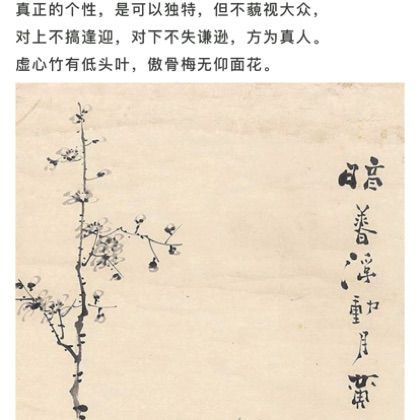 真正的个性，是可以独特，但不藐视大众，
对上不搞逢迎，对下不失谦逊，方为真人。
虚心竹有低头叶，傲骨梅无仰面花。
暗香浮動月黄